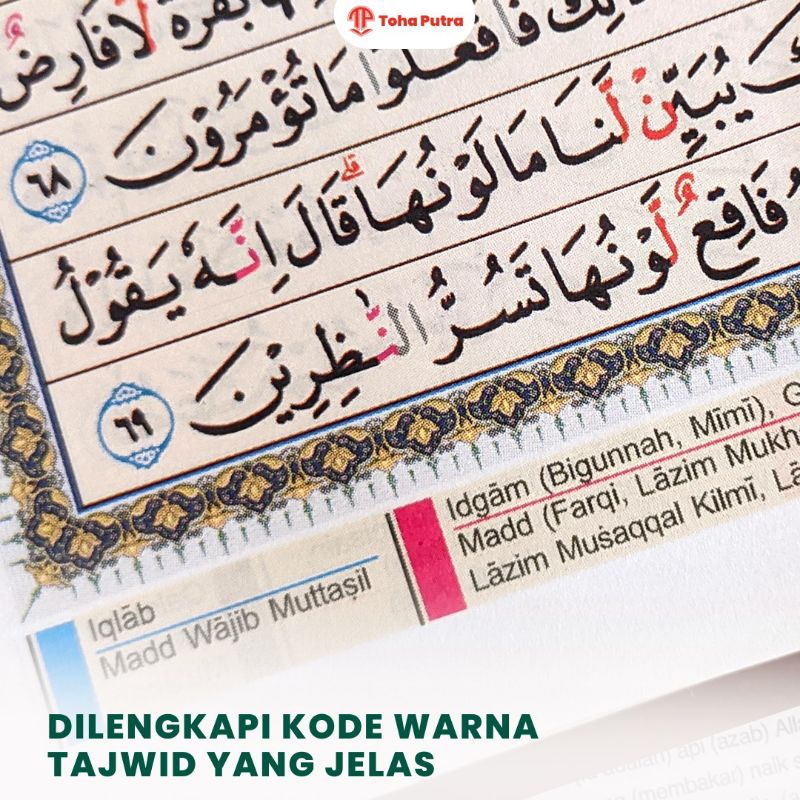 Toha Putra
بَقَرَةٌ لَّا فَارِضٌ
فَافْعَلُوْا مَا تُؤْمَرُوْنَ ٦٨
يُبَيِّنْ لَّنَا مَا لَوْنُهَاۗ قَالَ اِنَّهٗ يَقُوْلُ
فَاقِعٌ لَّوْنُهَا تَسُرُّ النّٰظِرِيْنَ ٦٩
Idgām (Bigunnah, Mīmī),
Madd (Farqi, Lāzim
Lāzim Muṡaqqal Kilmī,
Iqlāb
Madd Wājib Muttaṣil
DILENGKAPI KODE WARNA
TAJWID YANG JELAS
api (azab)
(membakar) naik